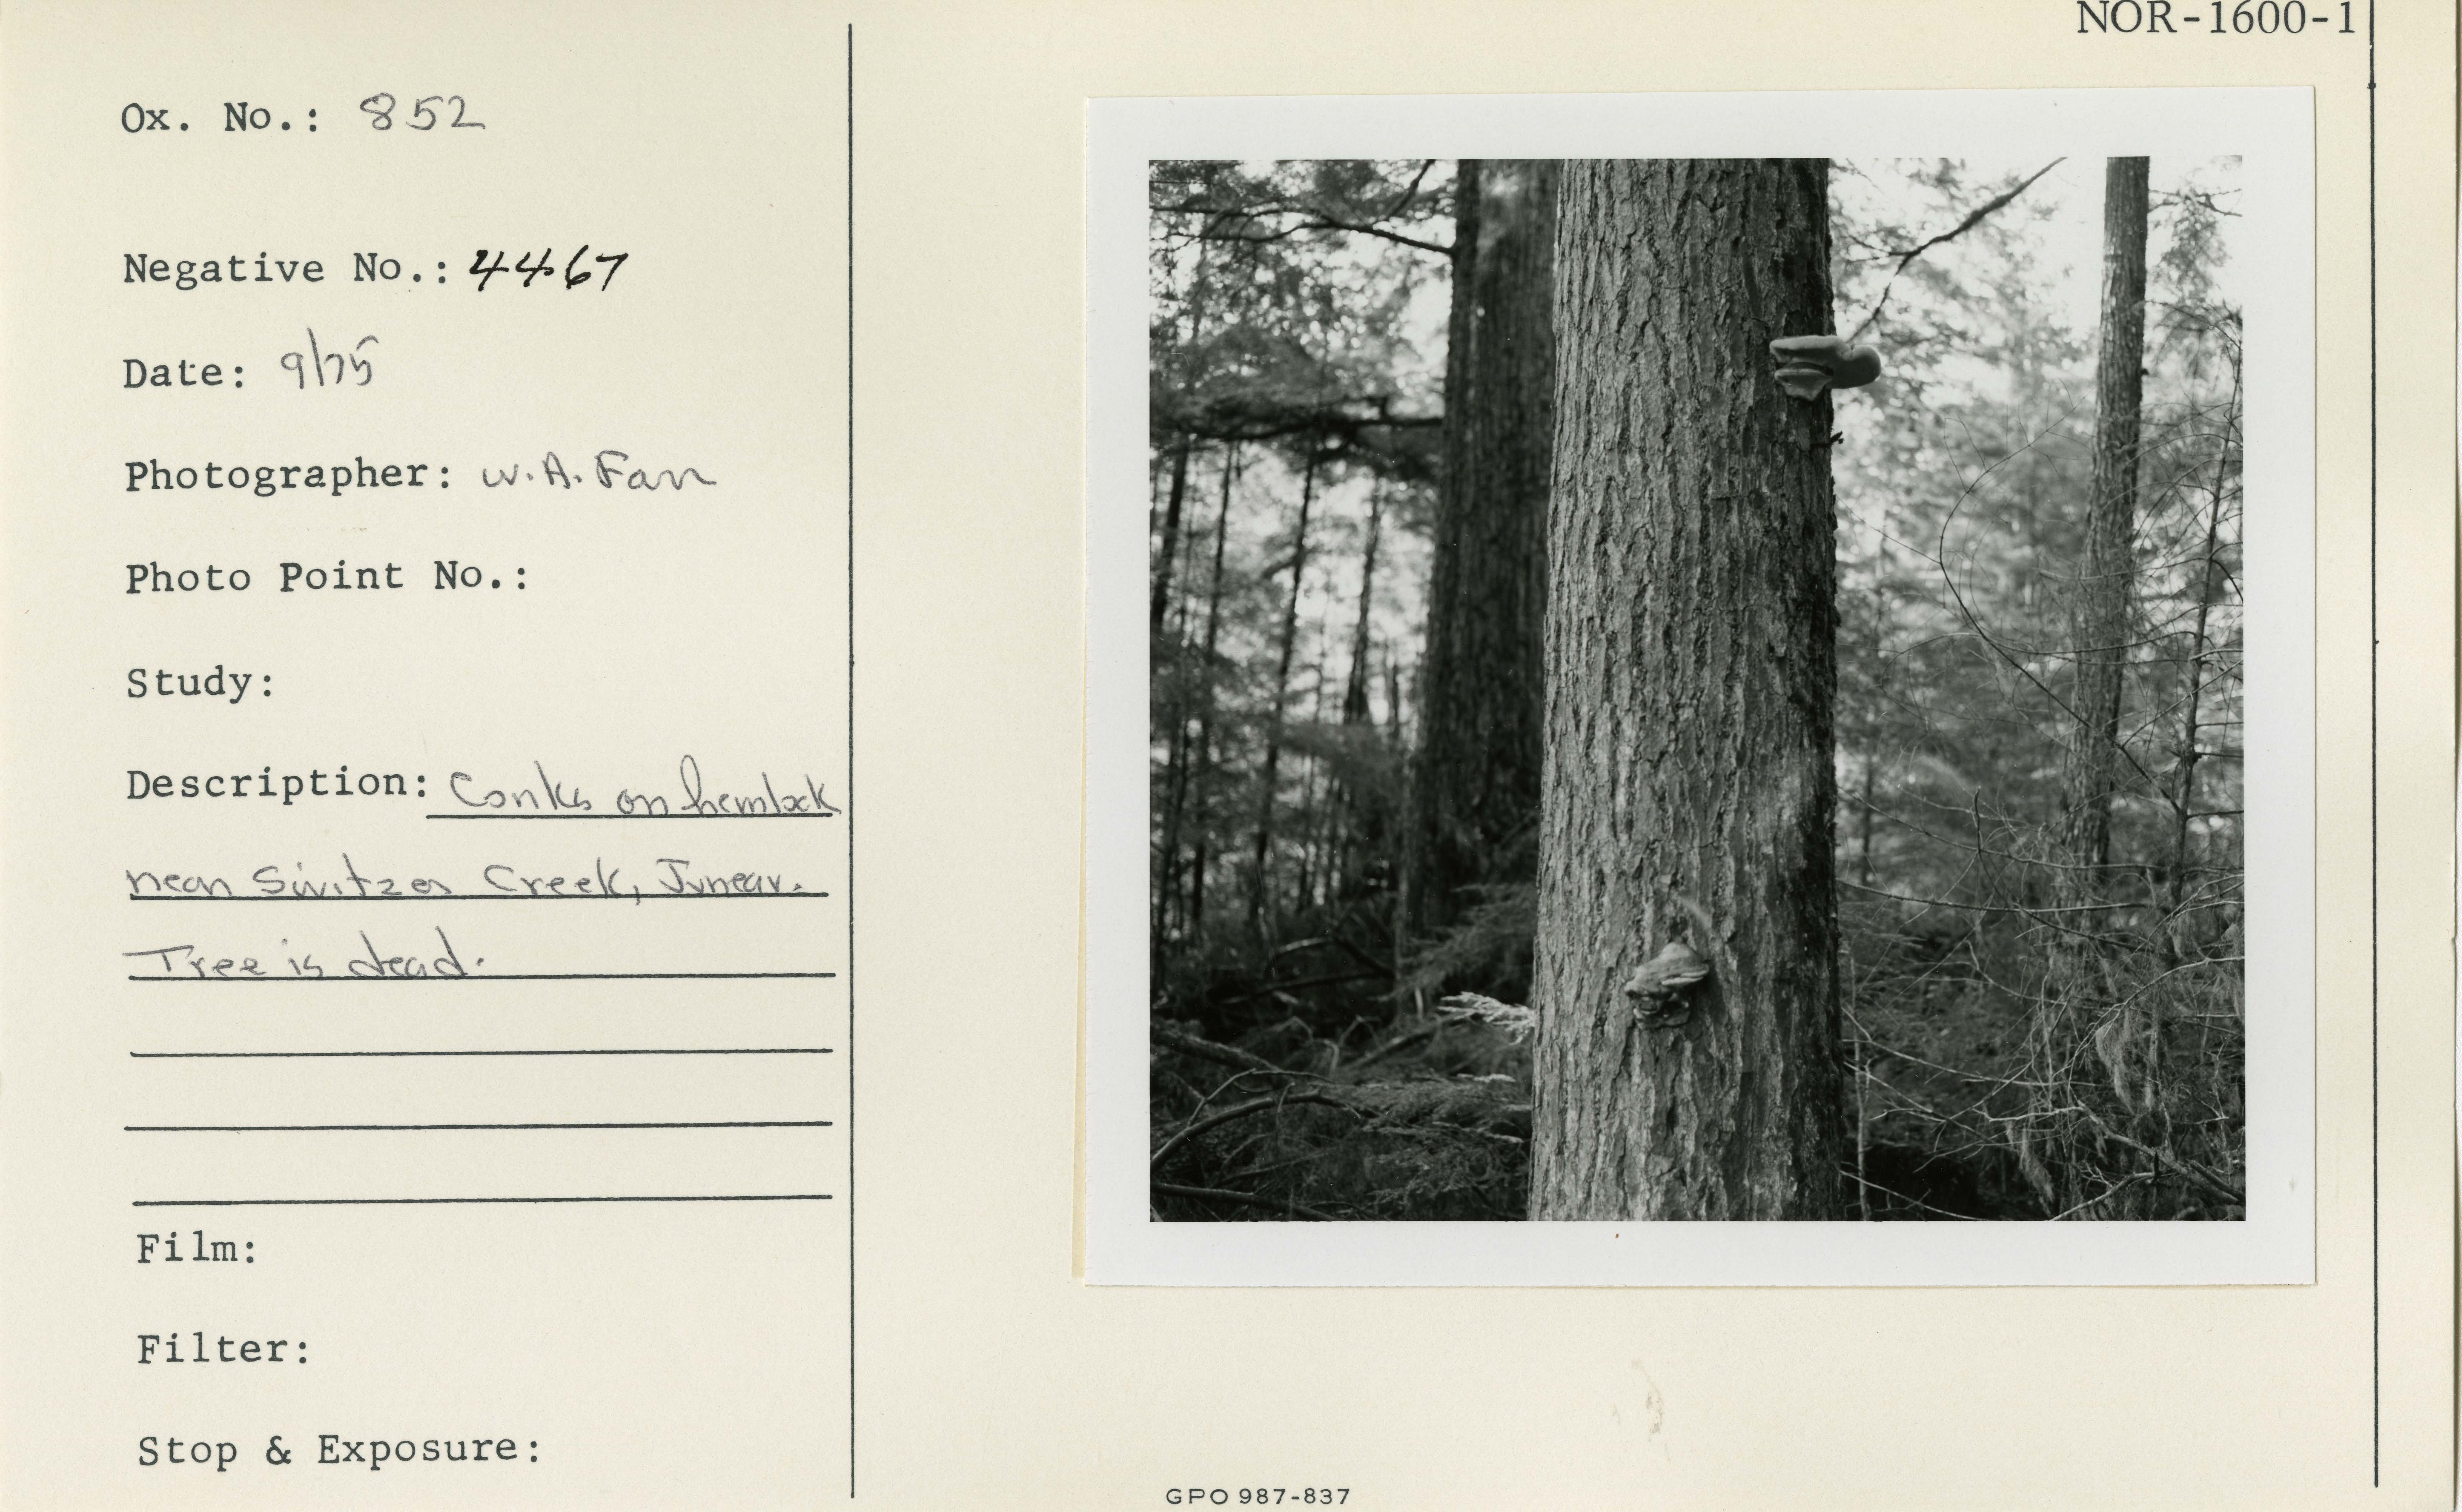 NOR-1600-1
Ox. No.: 852
Negative No.: 4467
Date: 9/75
Photographer: W.A. Farr
Photo Point No.:
Study:
Description: Conks on hemlock
near Switzer Creek, Juneau.
Tree is dead.
Film:
Filter:
Stop & Exposure:
GPO 987-837